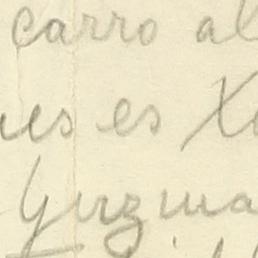 carro al
es es X
Guzma